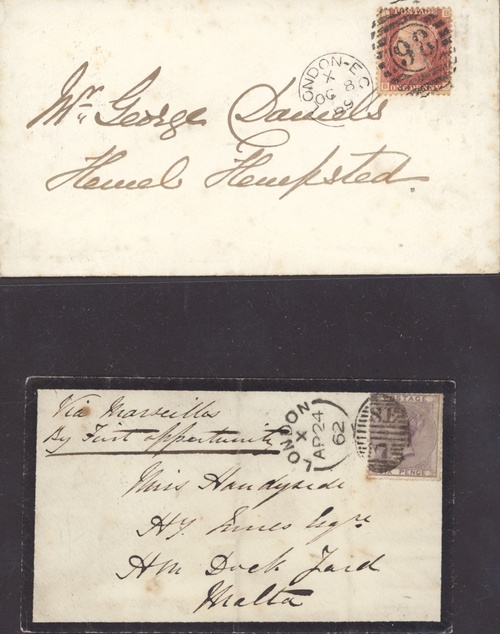 Mr. George Daniels
Hemel Hempsted
LONDON-E.C
X
OC 8
89
98
ONE PENNY
Via Marseilles
By First opportunity
LONDON
X
AP 24
62
POSTAGE
SIX PENCE
Miss Handyside
Hy. Innes Esqre
HM Dock Yard
Malta